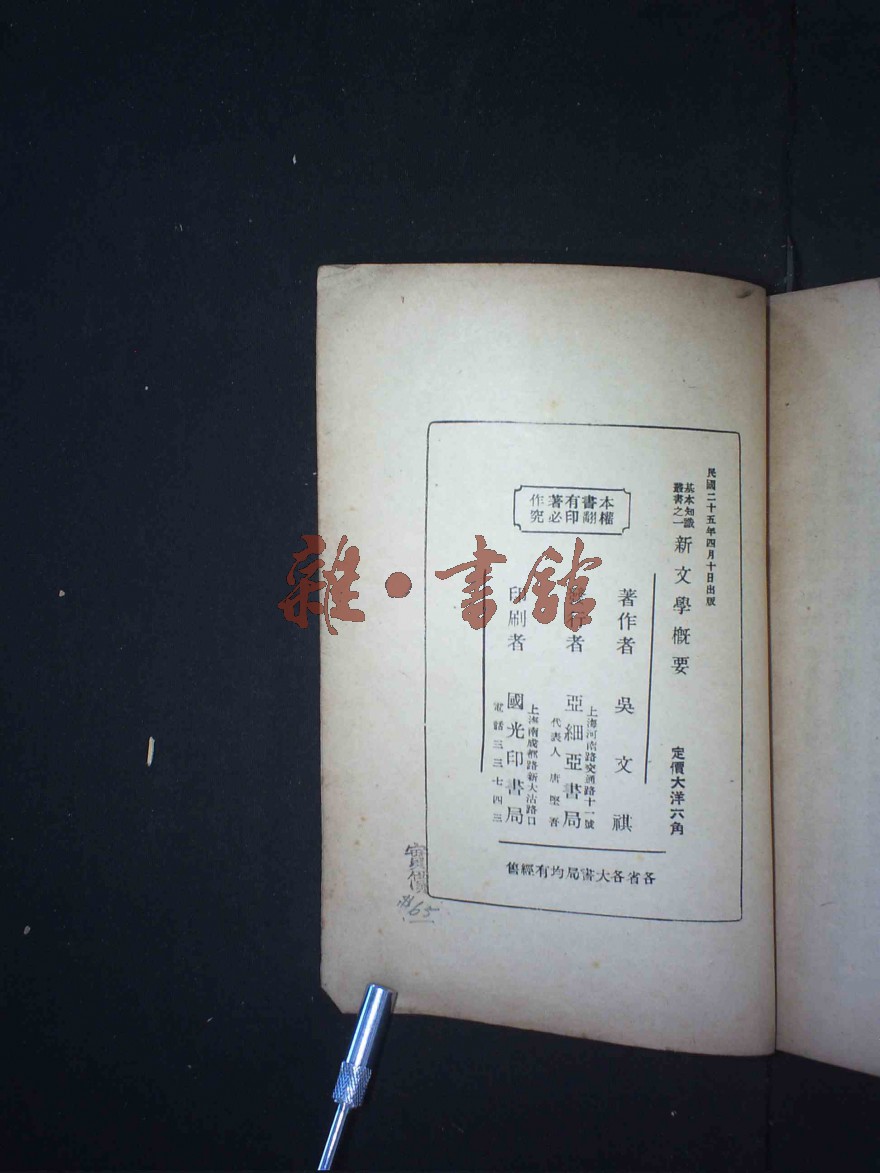 民國二十五年四月十日出版
基本知識
叢書之一
新文學概要
定價大洋六角
本書有著作
權翻印必究
著作者 吳文祺
行者 亞細亞書局
上海河南路交通路十一號
代表人 唐堅吾
印刷者 國光印書局
上海南成都路新大沽路口
電話三三七四三
各省各大書局均有經售
65
雜·書館